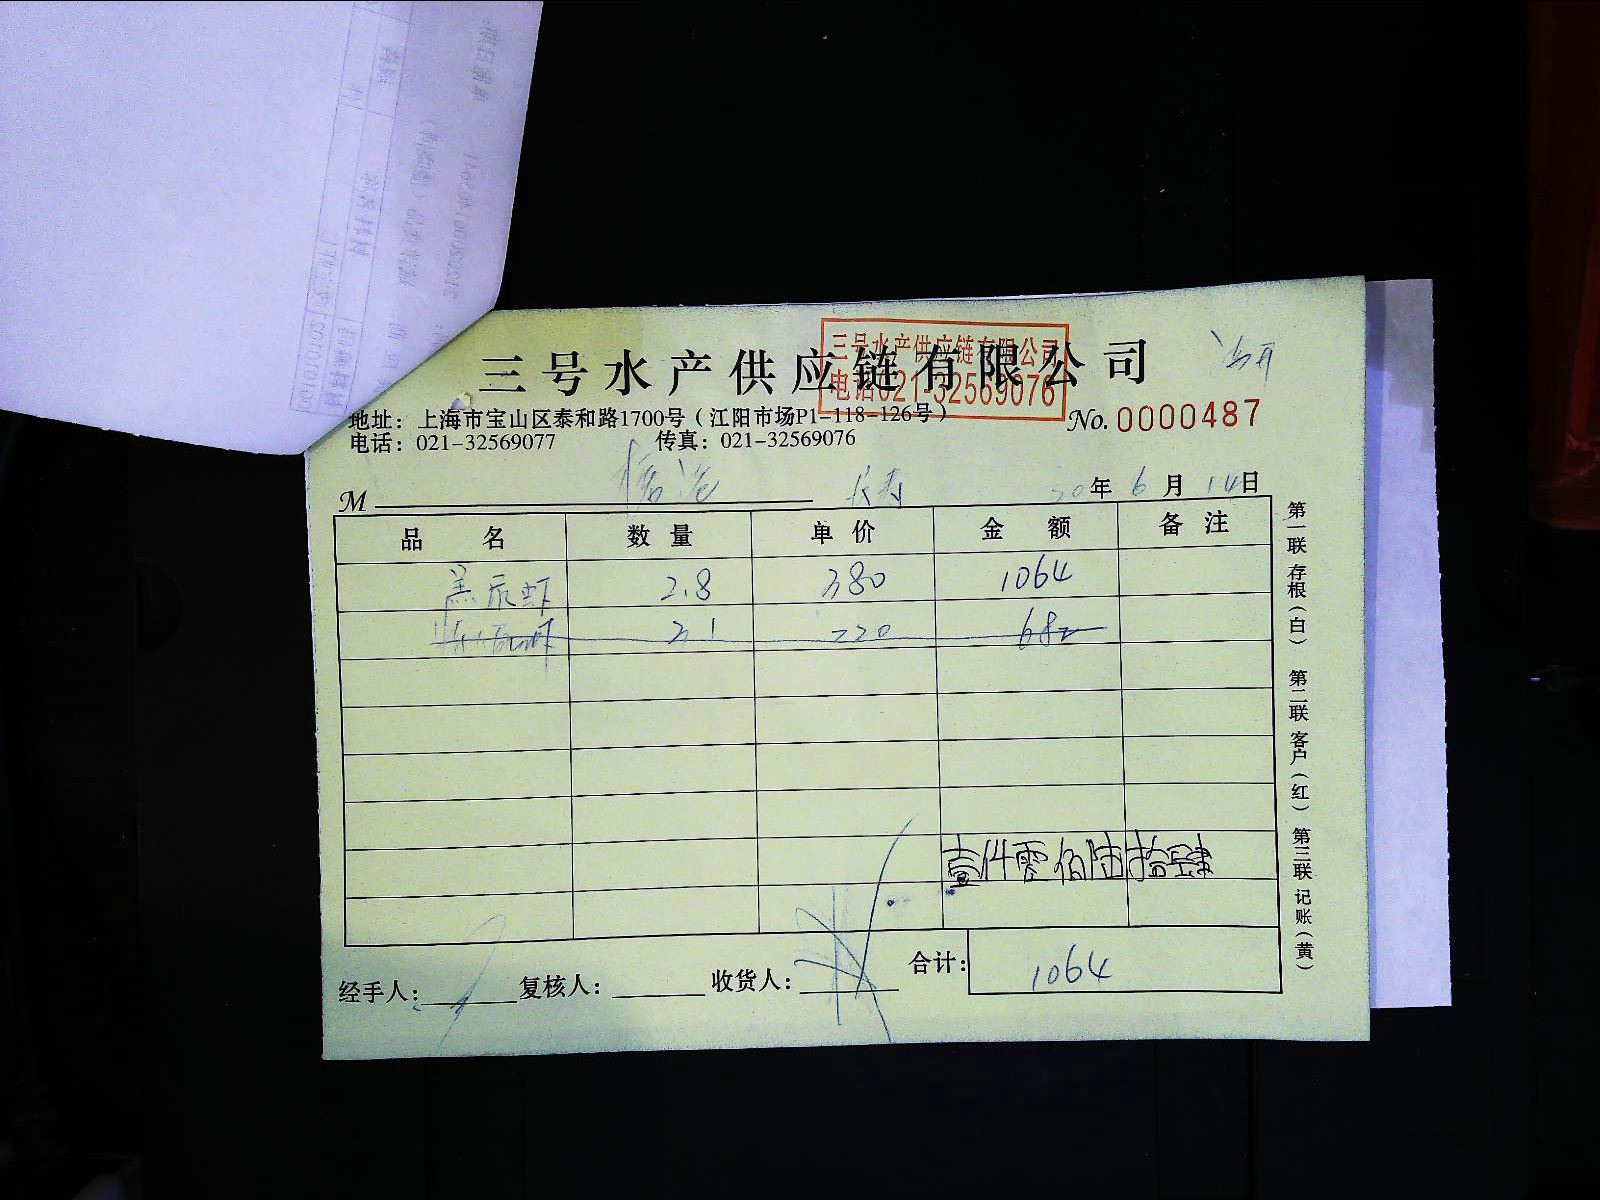 三号水产供应链有限公司
三号水产供应链有限公司
电话021-32569076
地址：上海市宝山区泰和路1700号（江阳市场P1-118-126号）
No. 0000487
电话：021-32569077 传真：021-32569076
M 20年 6月 14日
品名 数量 单价 金额 备注
黑虎虾 2.8 380 1064
220 682
壹仟零佰陆拾肆
经手人： 复核人： 收货人： 合计： 1064
第一联 存根（白） 第二联 客户（红） 第三联 记账（黄）